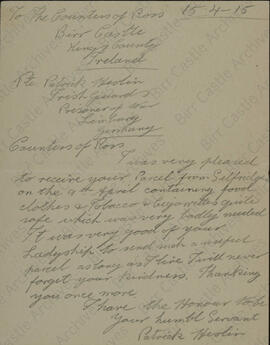 To The Countess of Ross 15-4-15
Birr Castle
Kings County
Ireland
Pte Patrick Heslin
Irish Guards
Prisoner of War
Limburg
Germany
Countess of Ross
I was very pleased
to receive your Parcel from Selfridge
on the 9th April containing food
clothes & Tobacco & Cigarettes quite
safe which was very badly needed
It was very good of your
Ladyship to send such a
parcel as long as I live I will never
forget your kindness. Thanking
you once more
I have the Honour to be
Your humble Servant
Patrick Heslin